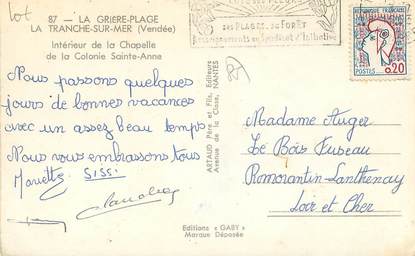 Lot
87 - LA GRIÈRE-PLAGE
LA TRANCHE-SUR-MER (Vendée)
Intérieur de la Chapelle
de la Colonie Sainte-Anne
Nous passons quelques
jours de bonnes vacances
avec un assez beau temps
Nous vous embrassons tous
SISSI
ARTAUD Père et Fils, Editeurs
Avenue de la Close, NANTES
Editions « GABY »
Marque Déposée
SES PLAGES, SA FORÊT
Renseignements au Syndicat d'Initiative
RÉPUBLIQUE FRANÇAISE
POSTES 0,20
Madame Auger
Le Bois Fuseau
Romorantin-Lanthenay
Loir et Cher